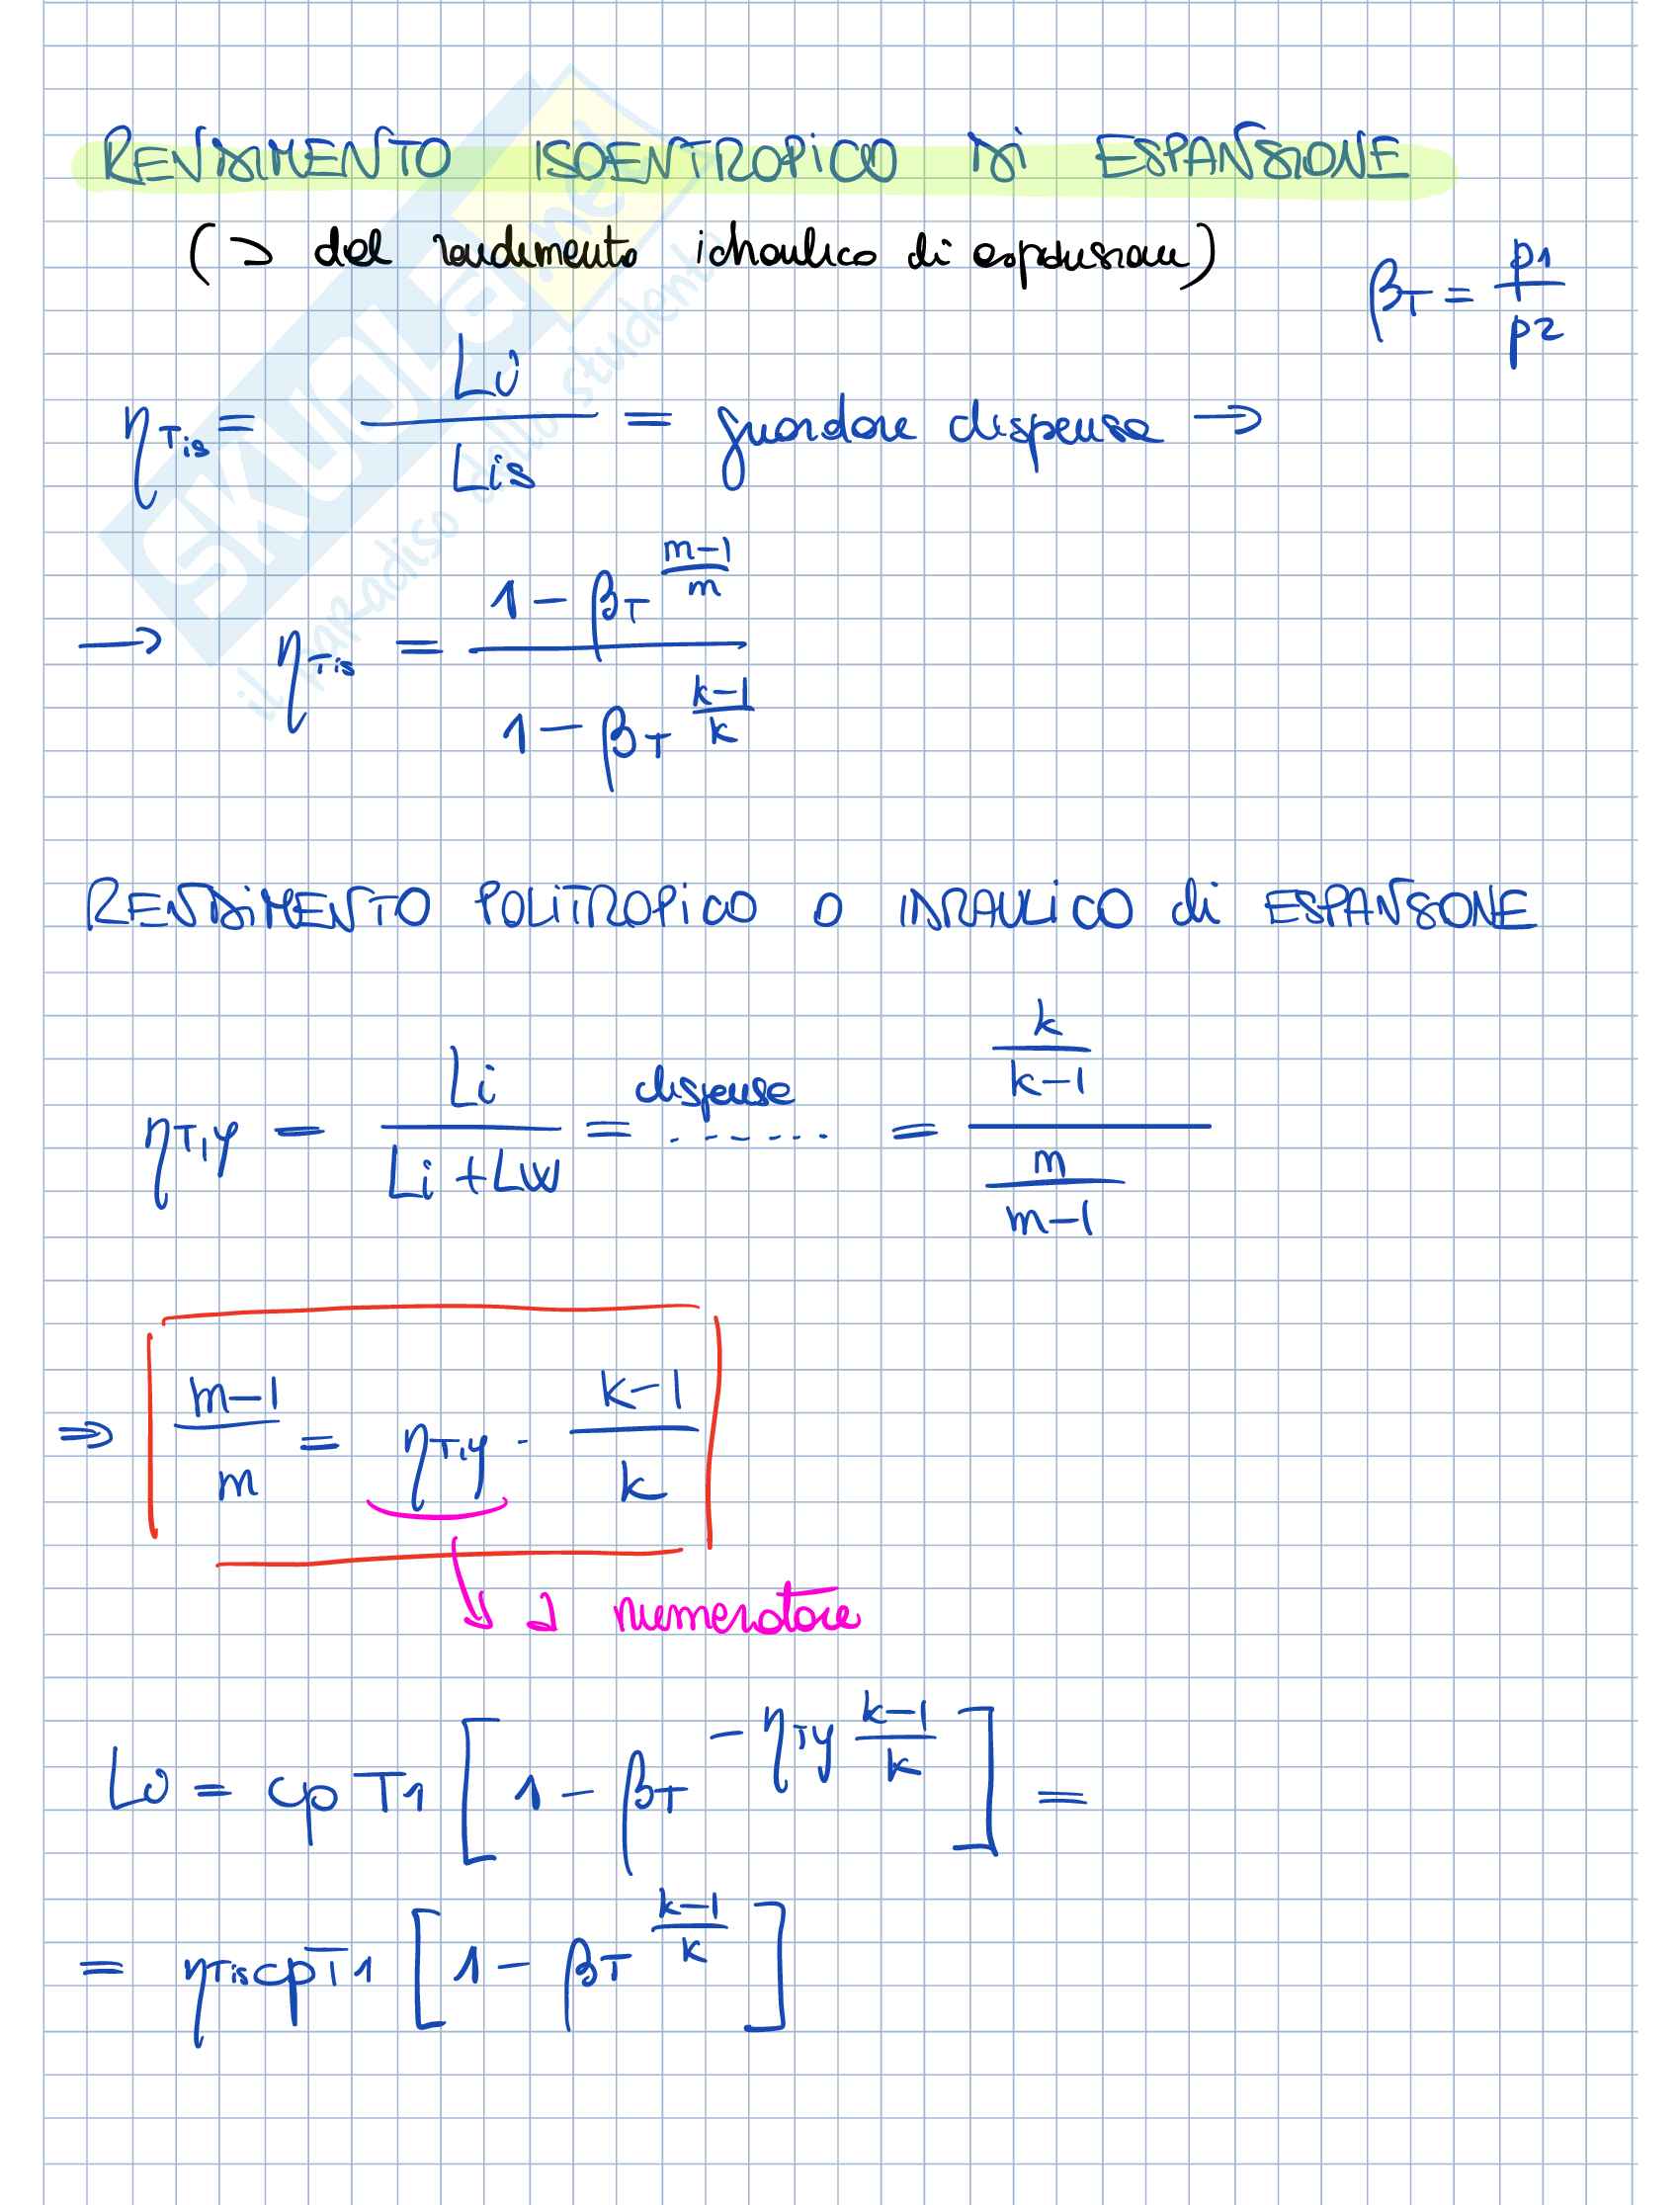 RENDIMENTO ISOENTROPICO DI ESPANSIONE
(> del rendimento idraulico di espansione)
βT = p1/p2
ηTis = Li/Lis = guardare dispensa →
→ ηTis = (1 - βT^((m-1)/m)) / (1 - βT^((k-1)/k))
RENDIMENTO POLITROPICO O IDRAULICO di ESPANSIONE
ηT,y = Li/(Li+Lw) = dispense ...... = (k/(k-1)) / (m/(m-1))
⇒ (m-1)/m = ηT,y · (k-1)/k
a numeratore
Li = cp T1 [1 - βT^(-ηTy (k-1)/k)] =
= ηTis cp T1 [1 - βT^((k-1)/k)]
SKUOLA.net
il paradiso dello studente